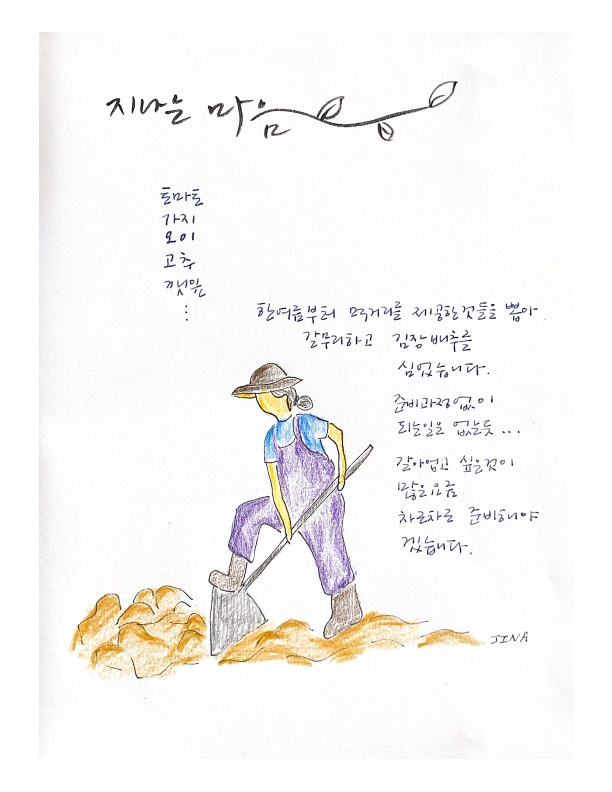 지나는 마음
토마토
가지
오이
고추
깻잎
⋮
한여름부터 먹거리를 제공한것들을 뽑아
갈무리하고 김장배추를
심었습니다.
준비과정없이
되는일은 없는듯...
갈아업고 싶은것이
많은요즘
차르차르 준비해야
겠습니다.
JINA